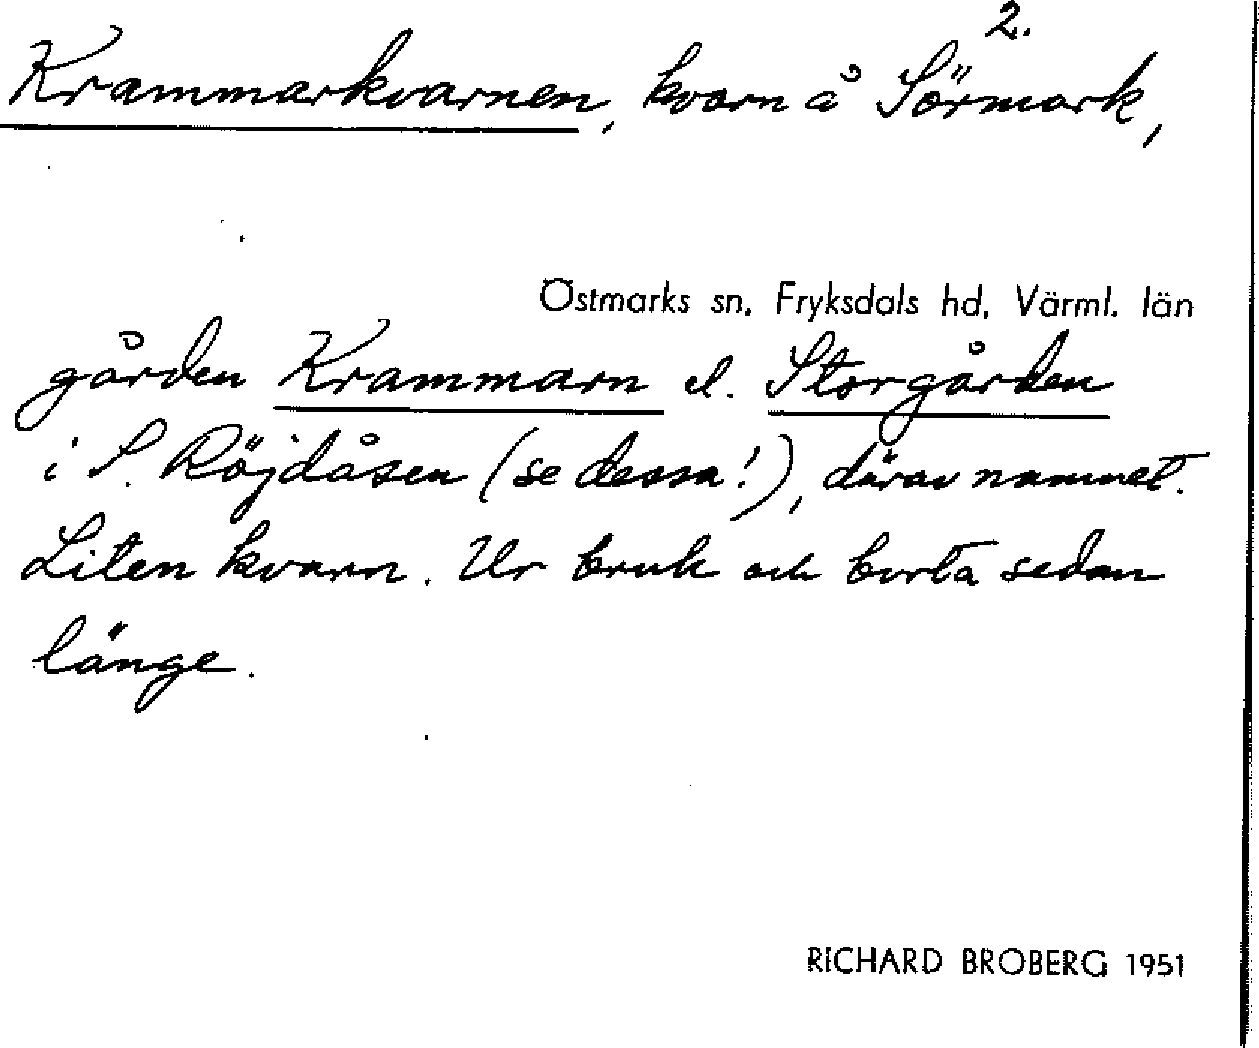 2.
Krammarkvarnen, kvarn å Sörmark,
Östmarks sn, Fryksdals hd, Värml. län
gården Krammarn el. Storgården
i S. Röjdåsen (se dessa!), därav namnet.
Liten kvarn. Ur bruk och borta sedan
länge.
RICHARD BROBERG 1951